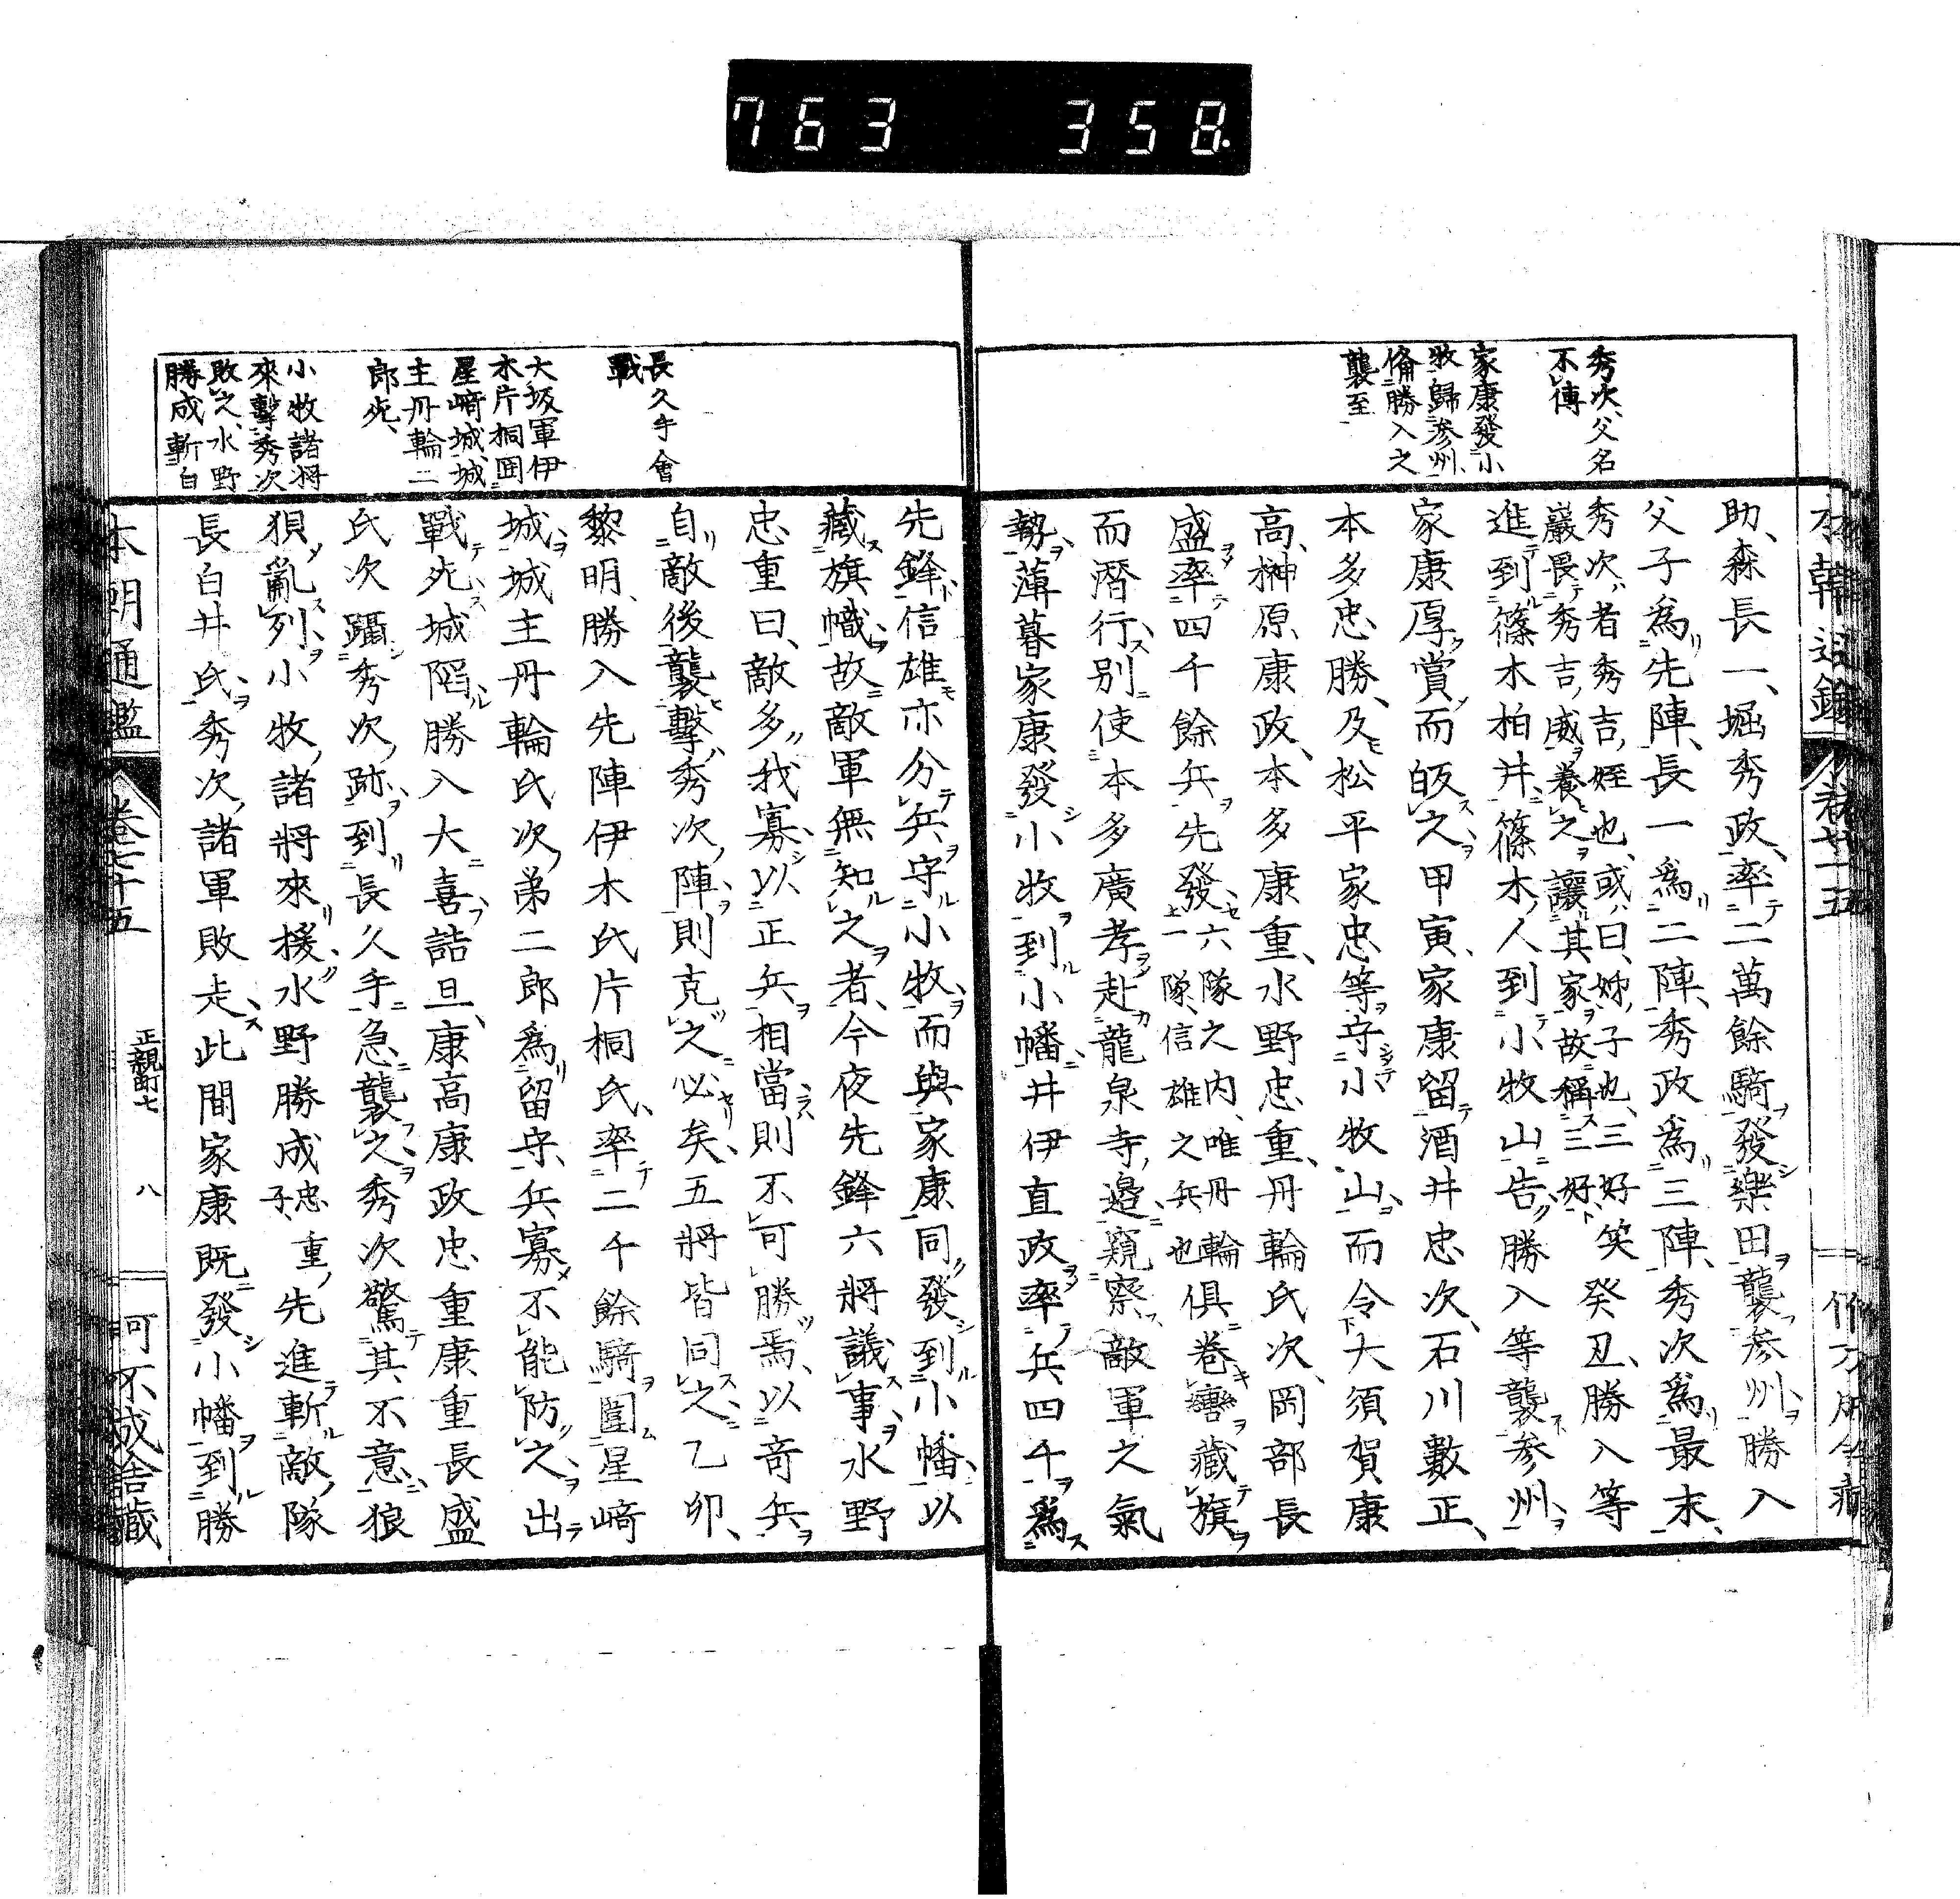 763 358
秀次父名
不傳
家康發小
牧歸参州
備勝入之
襲至
助、森長一、堀秀政、率二萬餘騎發樂田襲参州勝入
父子爲先陣、長一爲二陣、秀政爲三陣、秀次爲最末、
秀次者秀吉姪也、或曰、姊子也、三好笑
巖畏秀吉威養之讓其家故稱三好
癸丑、勝入等
進到篠木柏井、篠木人到小牧山告勝入等襲参州、
家康厚賞而皈之、甲寅、家康留酒井忠次、石川數正、
本多忠勝、及松平家忠等守小牧山、而令大須賀康
高、榊原康政、本多康重、水野忠重、丹輪氏次、岡部長
盛率四千餘兵先發、
六隊之内、唯丹輪
一隊、信雄之兵也
俱卷轡藏旗
而潛行、別使本多廣孝赴龍泉寺邊窺察敵軍之氣
勢、薄暮家康發小牧到小幡、井伊直政率兵四千爲
長久手會
戰
大坂軍伊
木片桐囲
星﨑城城
主丹輪二
郎死、
小牧諸将
來擊秀次
敗之、水野
勝成斬白
先鋒、信雄亦分兵守小牧、而與家康同發到小幡、以
藏旗幟故敵軍無知之者、今夜先鋒六將議事、水野
忠重曰、敵多我寡、以正兵相當則不可勝焉、以奇兵
自敵後襲擊秀次陣、則克之必矣、五將皆同之、乙卯、
黎明、勝入先陣伊木氏片桐氏、率二千餘騎圍星﨑
城、城主丹輪氏次弟二郎爲留守、兵寡不能防之、出
戰死城陷、勝入大喜、詰旦、康高康政忠重康重長盛
氏次躡秀次跡、到長久手急襲之、秀次驚其不意狼
狽亂列、小牧諸將來援、水野勝成忠重子、先進斬敵隊
長白井氏、秀次諸軍敗走、此間家康既發小幡到勝
本朝通鑑 卷七十五 正親町七 八